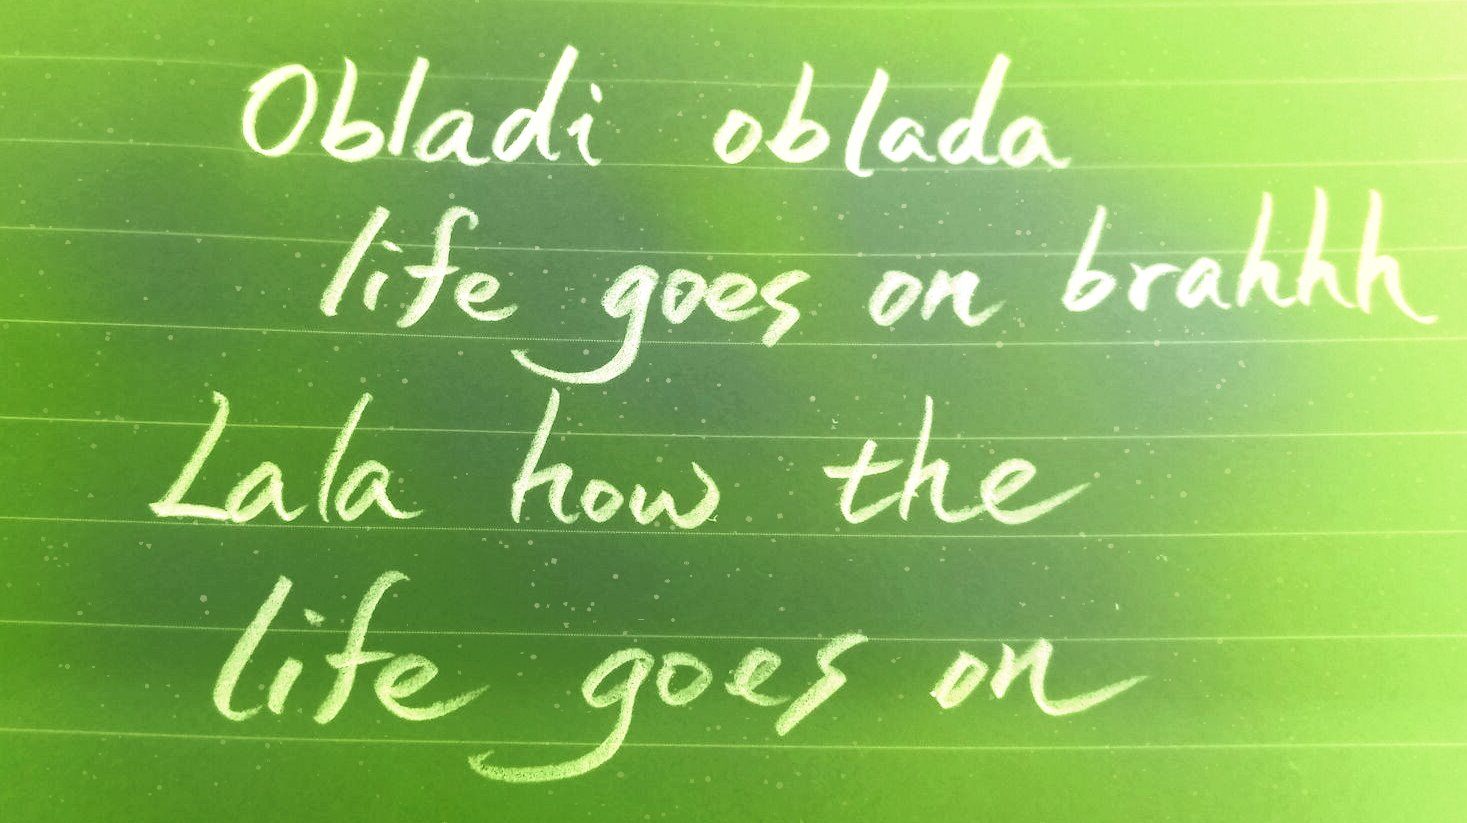 Obladi oblada
life goes on brahhh
Lala how the
life goes on